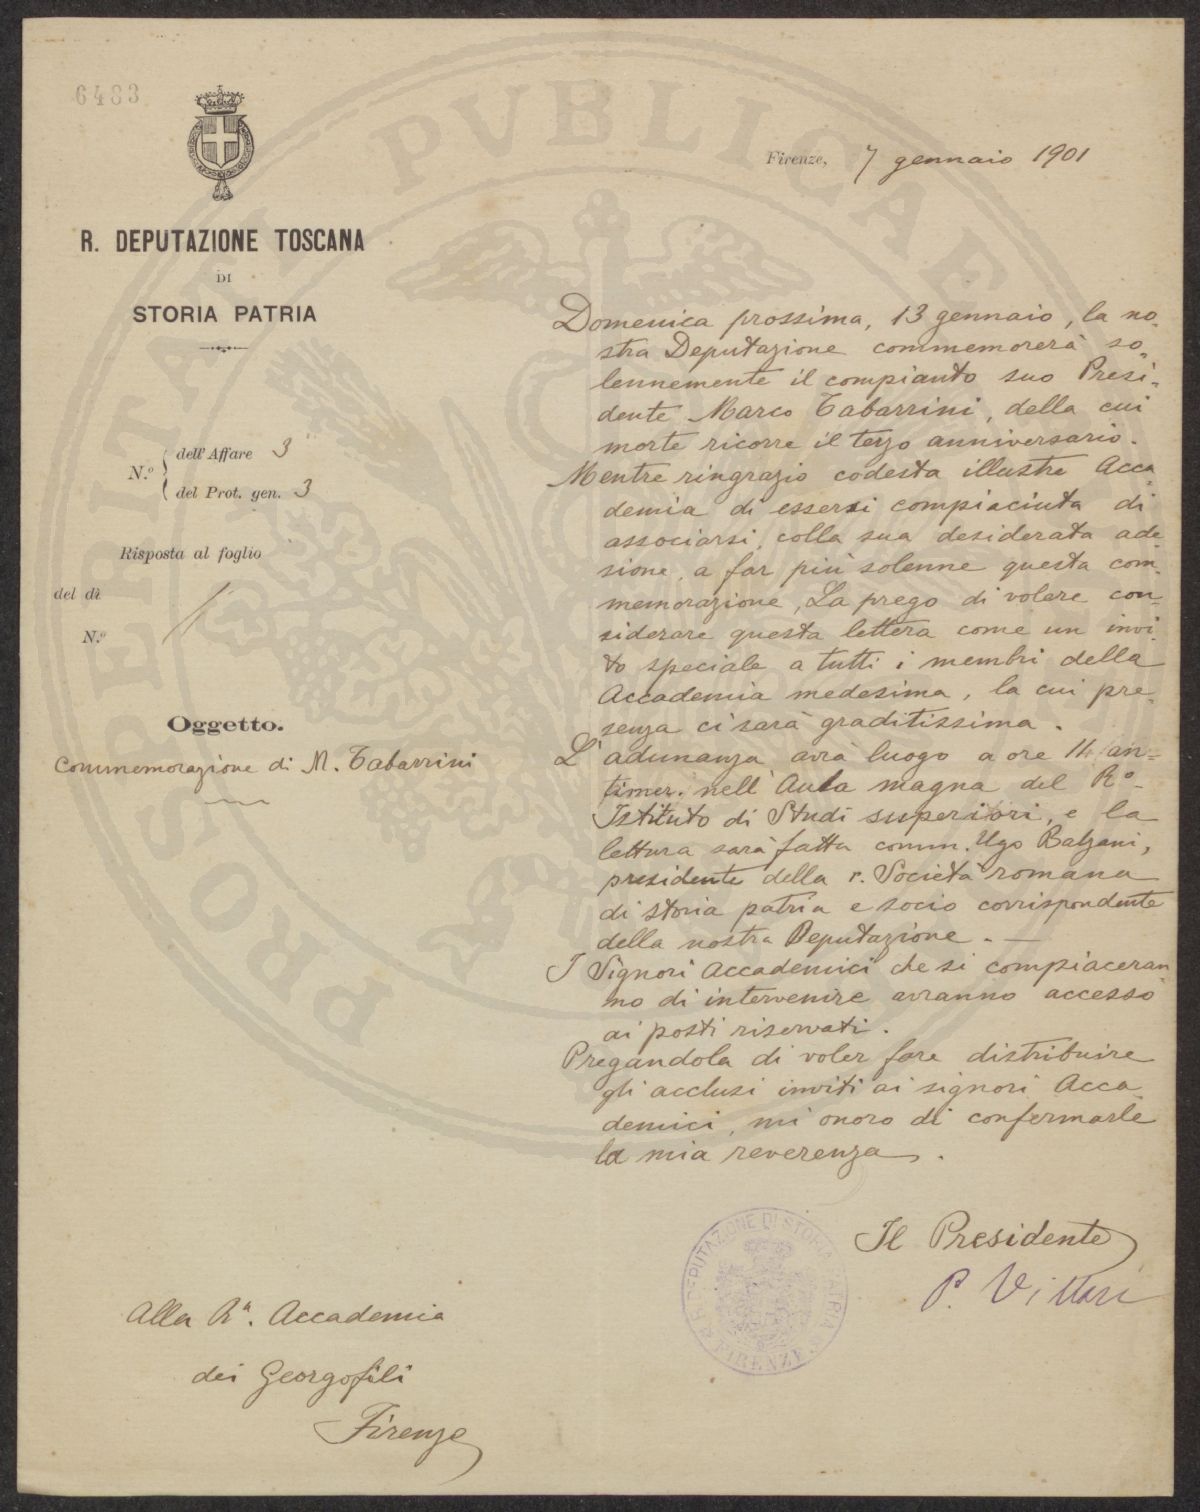 6483
Firenze, 7 gennaio 1901
R. DEPUTAZIONE TOSCANA
DI
STORIA PATRIA
N.º
dell' Affare 3
del Prot. gen. 3
Risposta al foglio
del dì
N.º
Oggetto.
Commemorazione di M. Tabarrini
Domenica prossima, 13 gennaio, la no-
stra Deputazione commemorerà so-
lennemente il compianto suo Presi-
dente Marco Tabarrini, della cui
morte ricorre il terzo anniversario.
Mentre ringrazio codesta illustre Acca
demia di essersi compiaciuta di
associarsi, colla sua desiderata ade
sione, a far più solenne questa com-
memorazione, La prego di volere con-
siderare questa lettera come un invi-
to speciale a tutti i membri della
Accademia medesima, la cui pre-
senza ci sarà graditissima.
L'adunanza avrà luogo a ore 14 an=
timer. nell'Aula magna del Rº
Istituto di Studi superiori, e la
lettura sarà fatta comm. Ugo Balzani,
presidente della r. Società romana
di storia patria e socio corrispondente
della nostra Deputazione. —
I Signori Accademici che si compiaceran
no di intervenire avranno accesso
ai posti riservati.
Pregandola di voler fare distribuire
gli acclusi inviti ai signori Acca
demici, mi onoro di confermarle
la mia reverenza.
Il Presidente
P. Villari
R. DEPUTAZIONE DI STORIA PATRIA
FIRENZE
Alla Rª. Accademia
dei Georgofili
Firenze
PROSPERITATI PVBLICAE